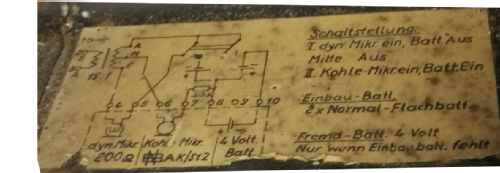 Schaltstellung:
I. dyn. Mikr. ein, Batt. Aus
Mitte. Aus
II. Kohle-Mikr. ein, Batt. Ein
Einbau-Batt.
2x Normal-Flachbatt.
Fremd-Batt. 4 Volt
Nur wenn Einbaubatt. fehlt
4 5 6 7 8 9 10
dyn. Mikr. Kohl. Mikr. 4 Volt
200Ω Batt.